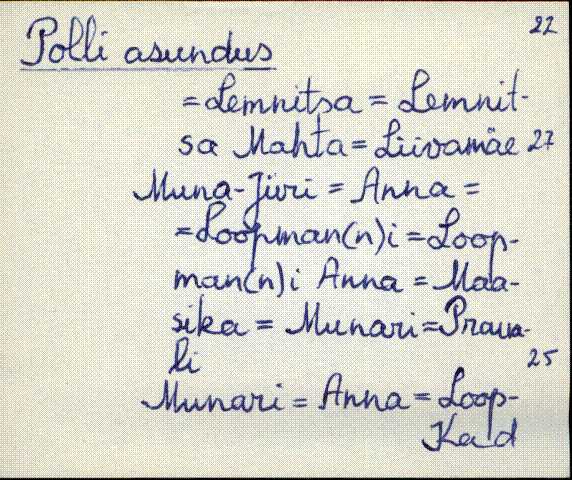 22
Polli asundus
=Lemnitsa = Lemnit-
sa Mahta = Liivamäe 27
Muna-Jüri = Anna =
=Loopman(n)i = Loop-
man(n)i Anna = Maa-
sika = Munari = Praua-
li 25
Munari = Anna = Loop-
Kad